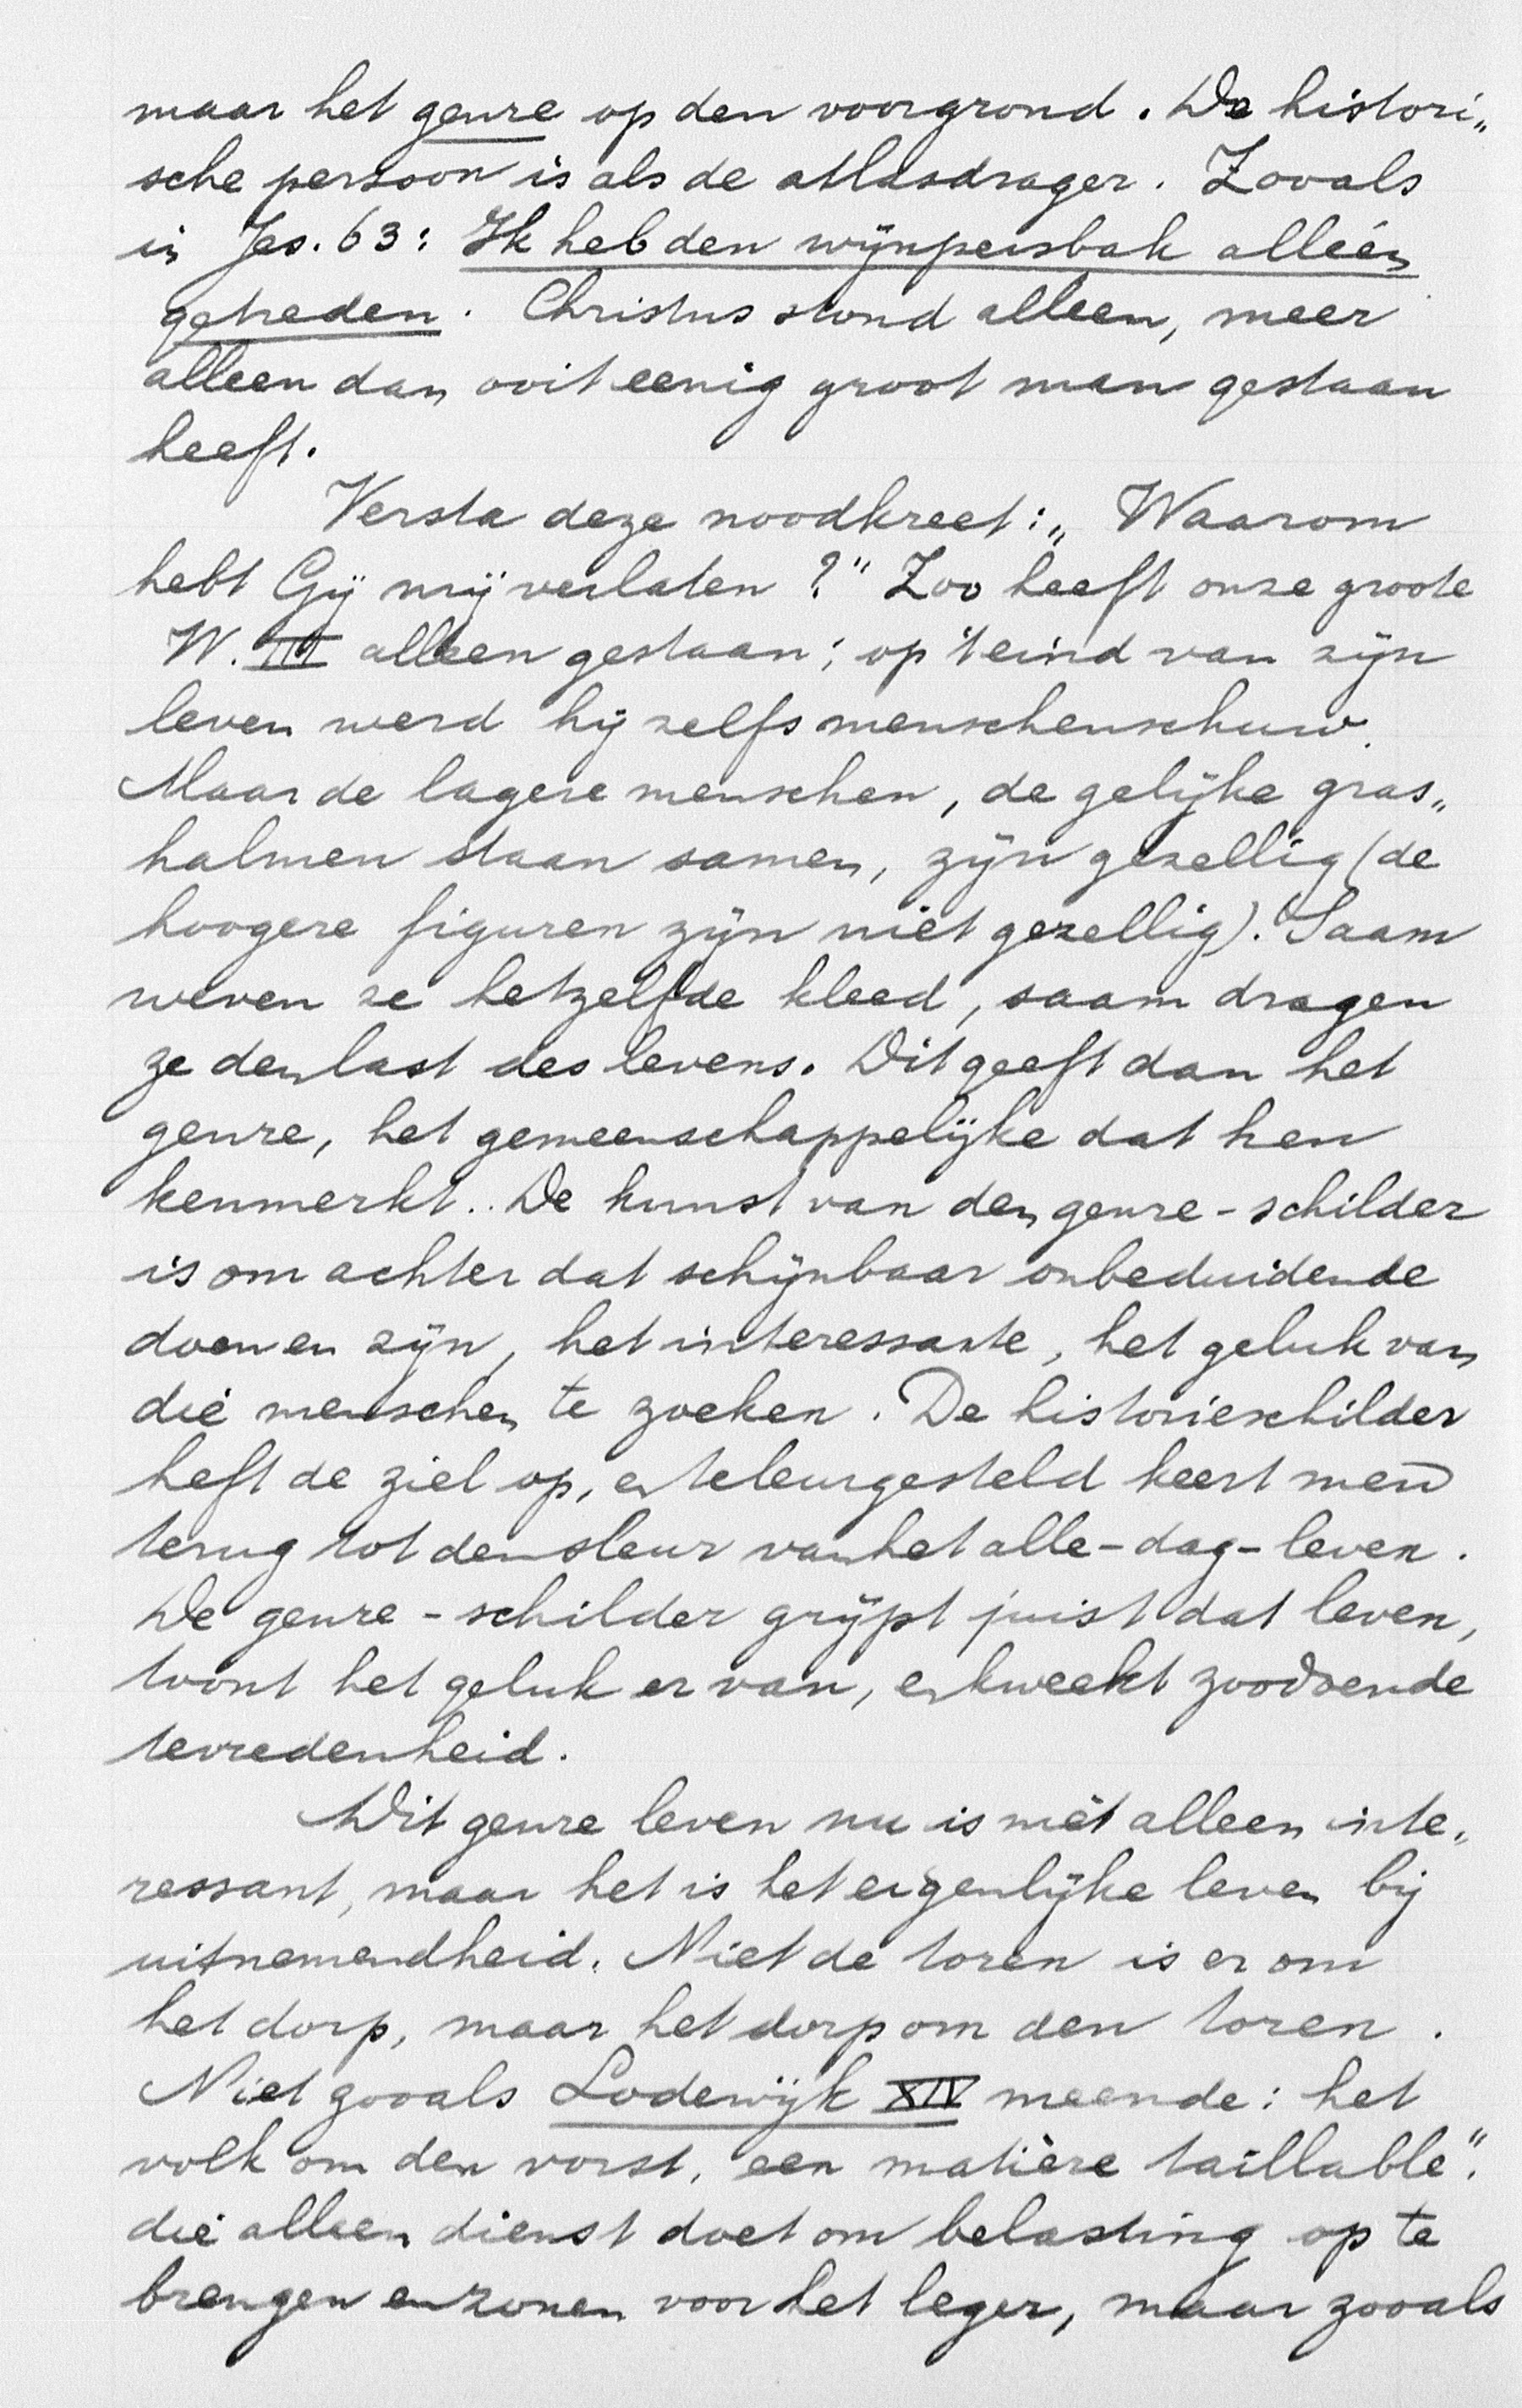 maar het genre op den voorgrond. De histori„
sche persoon is als de atlasdrager. Zooals
in Jes. 63: Ik heb den wijnpersbak alléén
getreden. Christus stond alleen, meer
alleen dan ooit eenig groot man gestaan
heeft.
Versta deze noodkreet: „Waarom
hebt Gij mij verlaten?" Zoo heeft onze groote
W. III alleen gestaan; op 't eind van zijn
leven werd hij zelfs menschenschuw.
Maar de lagere menschen, de gelijke gras„
halmen staan samen, zijn gezellig (de
hoogere figuren zijn niet gezellig). Saam
weven ze hetzelfde kleed, saam dragen
ze den last des levens. Dit geeft dan het
genre, het gemeenschappelijke dat hen
kenmerkt.. De kunst van den genre-schilder
is om achter dat schijnbaar onbeduidende
doen en zijn, het interessante, het geluk van
die menschen te zoeken. De historieschilder
heft de ziel op, en teleurgesteld keert men
terug tot den sleur van het alle-dag-leven.
De genre-schilder grijpt juist dat leven,
toont het geluk er van, en kweekt zoodoende
tevredenheid.
Dit genre leven nu is niet alleen inte„
ressant, maar het is het eigenlijke leven bij
uitnemendheid. Niet de toren is er om
het dorp, maar het dorp om den toren.
Niet zooals Lodewijk XIV meende: het
volk om den vorst, een matière taillable".
die alleen dienst doet om belasting op te
brengen en zonen voor het leger, maar zooals